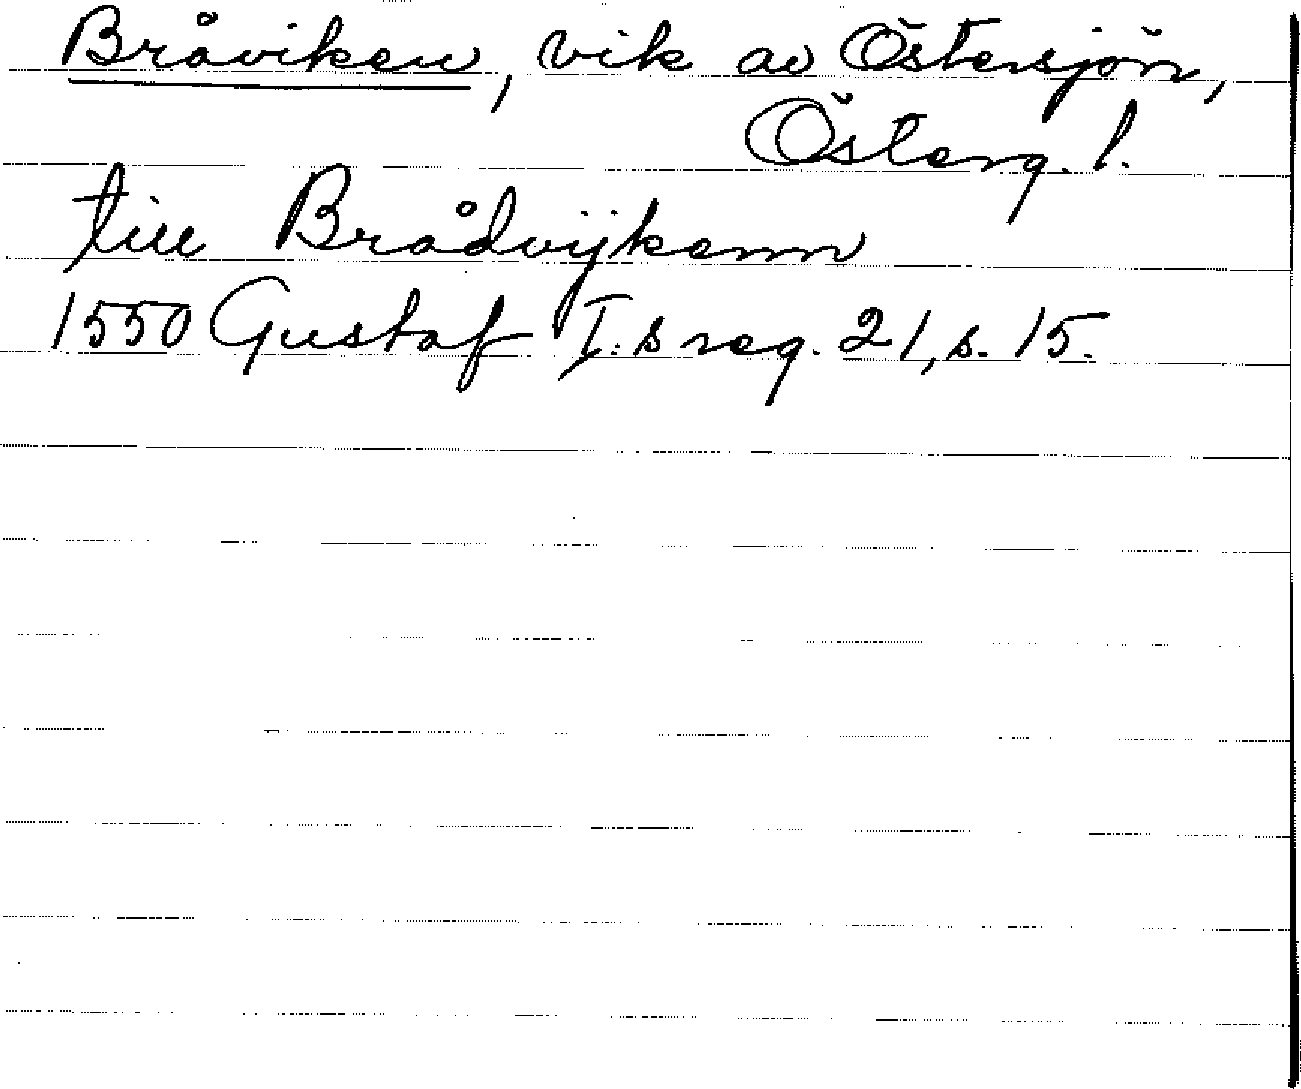 Bråviken, vik av Östersjön,
Österg. l.
till Brådvijkenn
1550 Gustaf I:s reg. 21, s. 15.